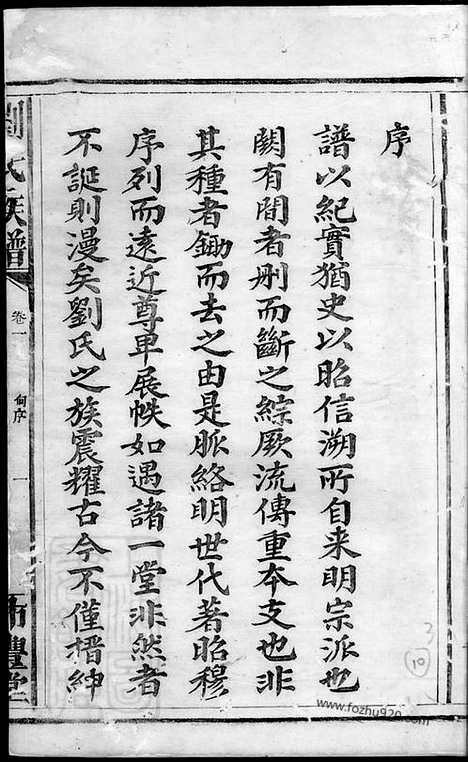 序
譜以紀實猶史以昭信溯所自来明宗派也
闕有間者刪而斷之綜厥流傳重本支也非
其種者鋤而去之由是脈絡明世代著昭穆
序列而遠近尊卑展帙如遇諸一堂非然者
不誕則漫矣劉氏之族震耀古今不僅搢紳
劉氏族譜
卷一
序
一
豐堂
3
10
www.fozhu920.com